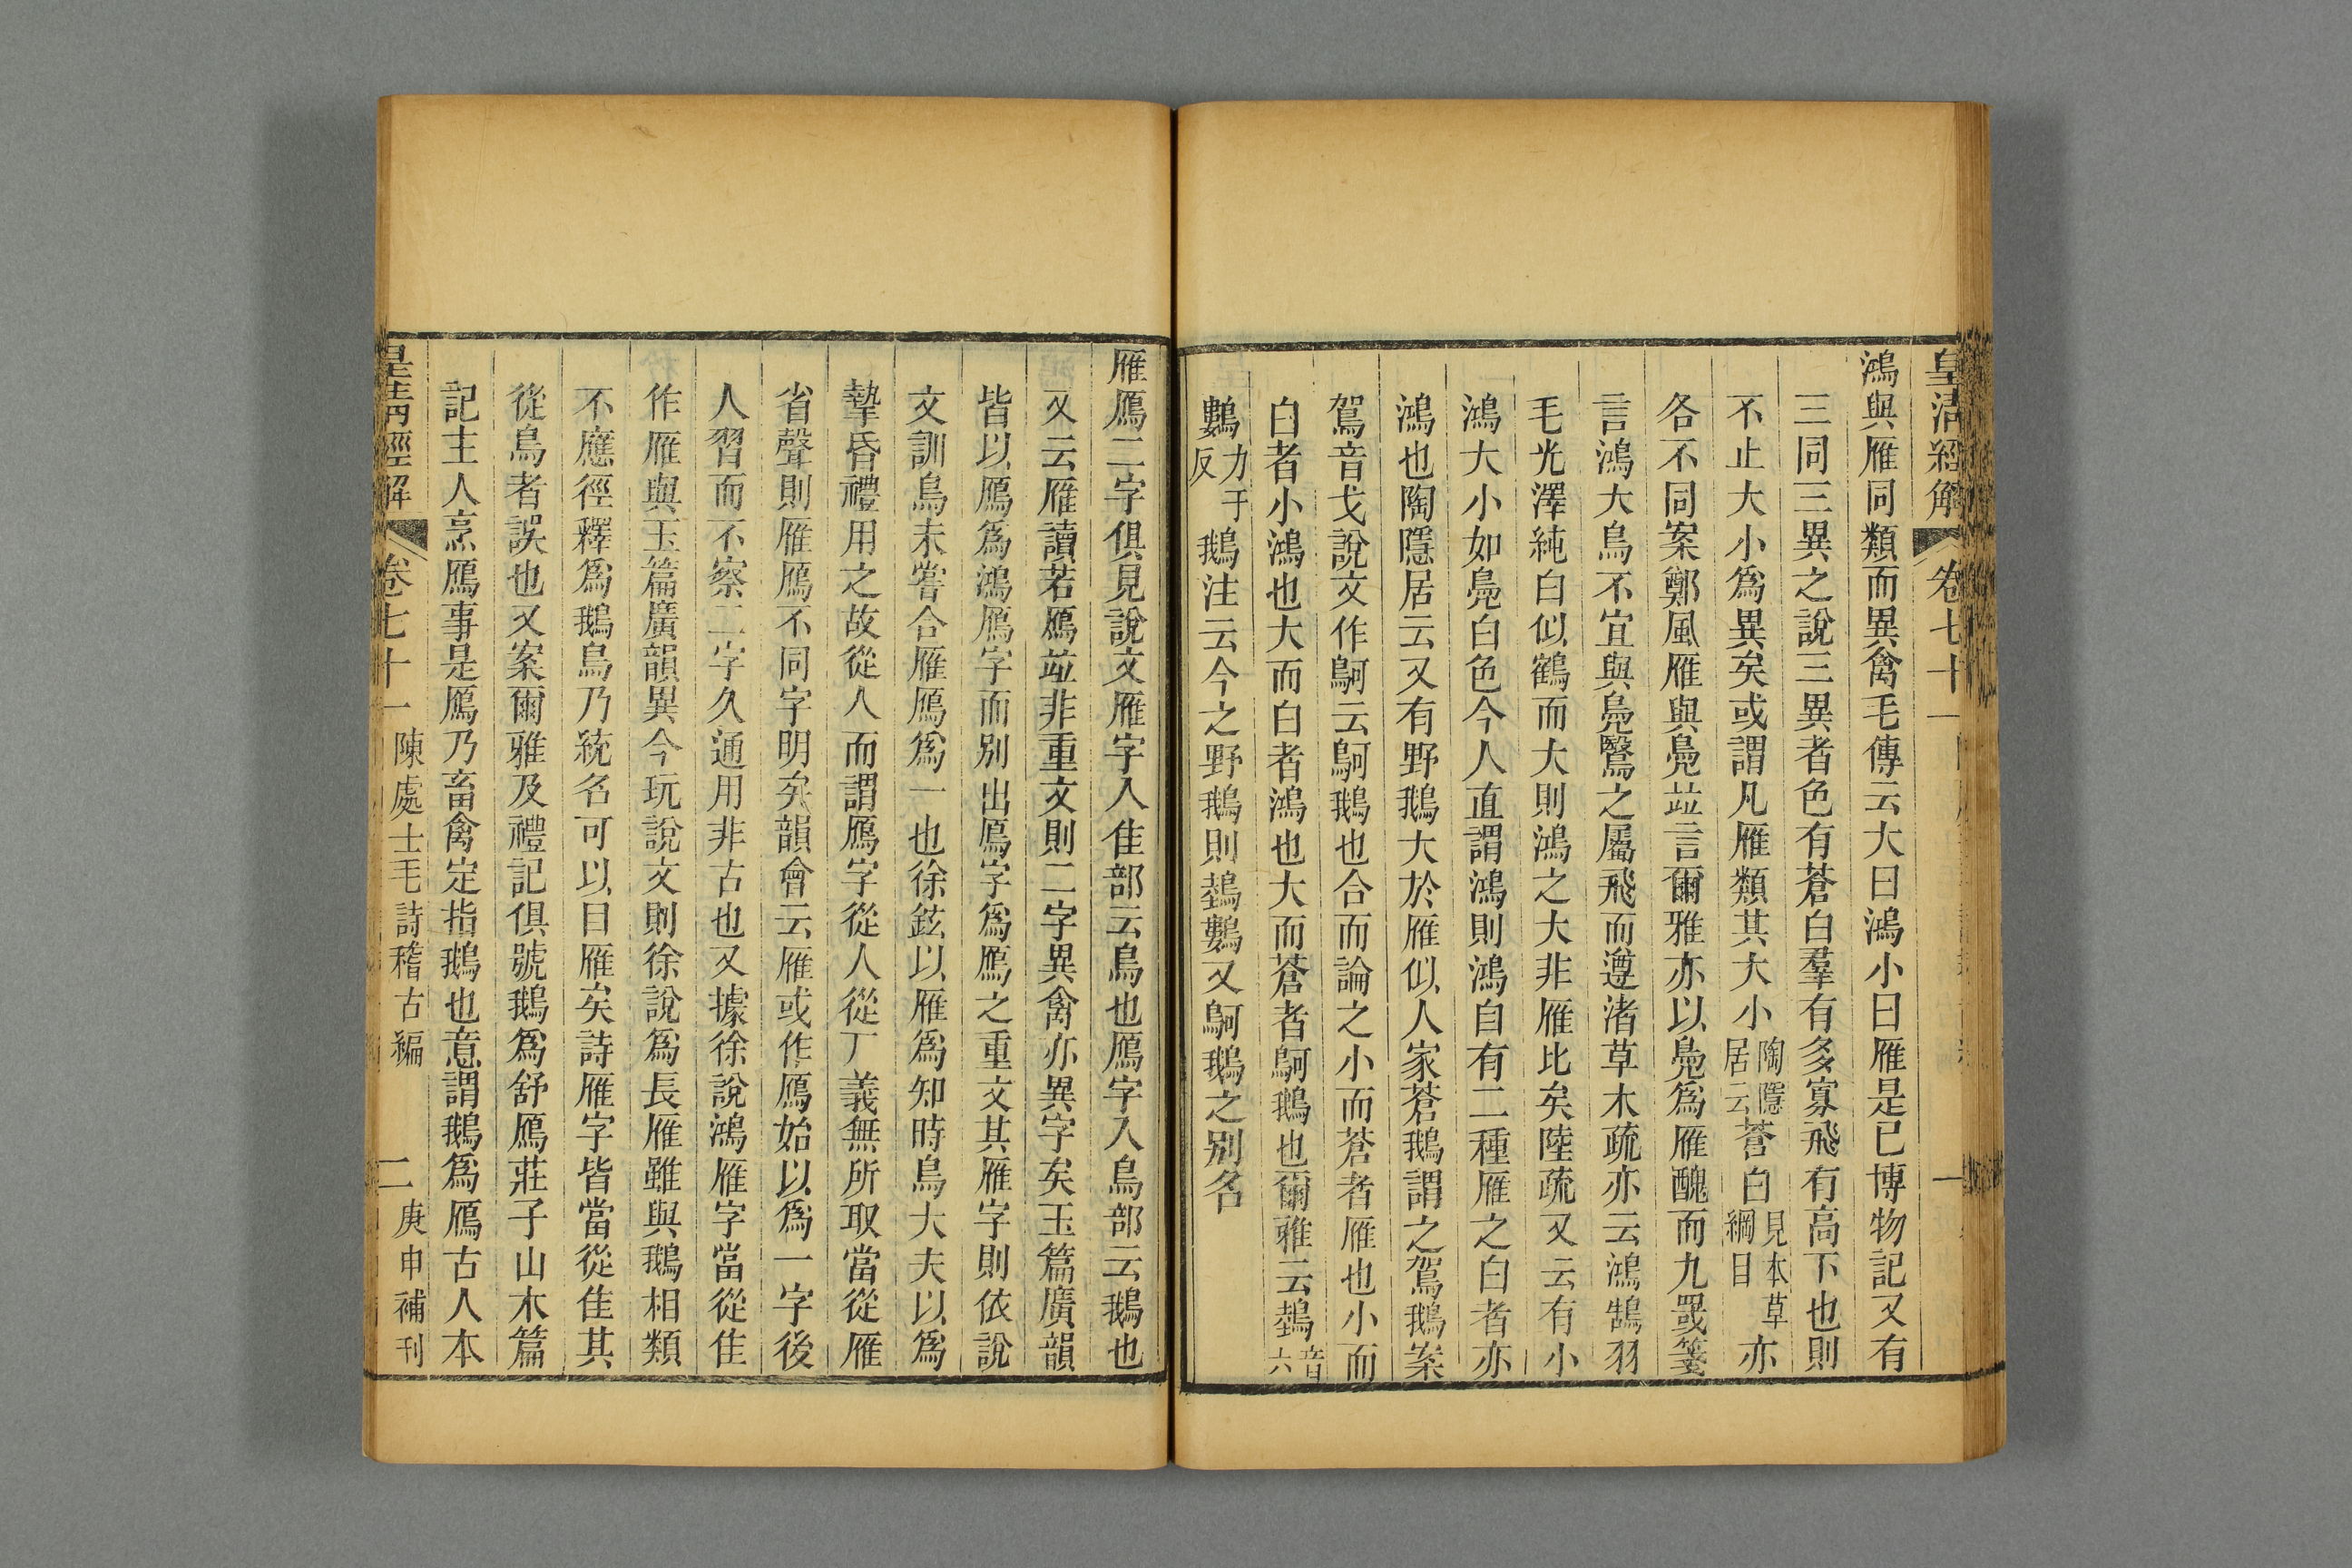 皇清經解 卷七十一
鴻與雁同類而異禽毛傳云大曰鴻小曰雁是已博物記又有
三同三異之說三異者色有蒼白羣有多寡飛有高下也則
不止大小爲異矣或謂凡雁類其大小陶隱居云蒼白見本草綱目亦
各不同案鄭風雁與鳧竝言爾雅亦以鳧爲雁醜而九罭箋
言鴻大鳥不宜與鳧鷖之屬飛而遵渚草木疏亦云鴻鵠羽
毛光澤純白似鶴而大則鴻之大非雁比矣陸疏又云有小
鴻大小如鳧白色今人直謂鴻則鴻自有二種雁之白者亦
鴻也陶隱居云又有野鵝大於雁似人家蒼鵝謂之駕鵝案
駕音戈說文作鴚云鴚鵝也合而論之小而蒼者雁也小而
白者小鴻也大而白者鴻也大而蒼者鴚鵝也爾雅云鵱音六
鷜力于反鵝注云今之野鵝則鵱鷜又鴚鵝之別名
雁鴈二字俱見說文雁字入隹部云鳥也鴈字入鳥部云鵝也
又云雁讀若鴈竝非重文則二字異禽亦異字矣玉篇廣韻
皆以鴈爲鴻鴈字而別出鳫字爲鴈之重文其雁字則依說
文訓鳥未嘗合雁鴈爲一也徐鉉以雁爲知時鳥大夫以爲
摯昏禮用之故從人而謂鴈字從人從厂義無所取當從雁
省聲則雁鴈不同字明矣韻會云雁或作鴈始以爲一字後
人習而不察二字久通用非古也又據徐說鴻雁字當從隹
作雁與玉篇廣韻異今玩說文則徐說爲長雁雖與鵝相類
不應徑釋爲鵝鳥乃統名可以目雁矣詩雁字皆當從隹其
從鳥者誤也又案爾雅及禮記俱號鵝爲舒鴈莊子山木篇
記主人烹鴈事是鴈乃畜禽定指鵝也意謂鵝爲鴈古人本
皇清經解 卷七十一 陳處士毛詩稽古編 二 庚申補刊